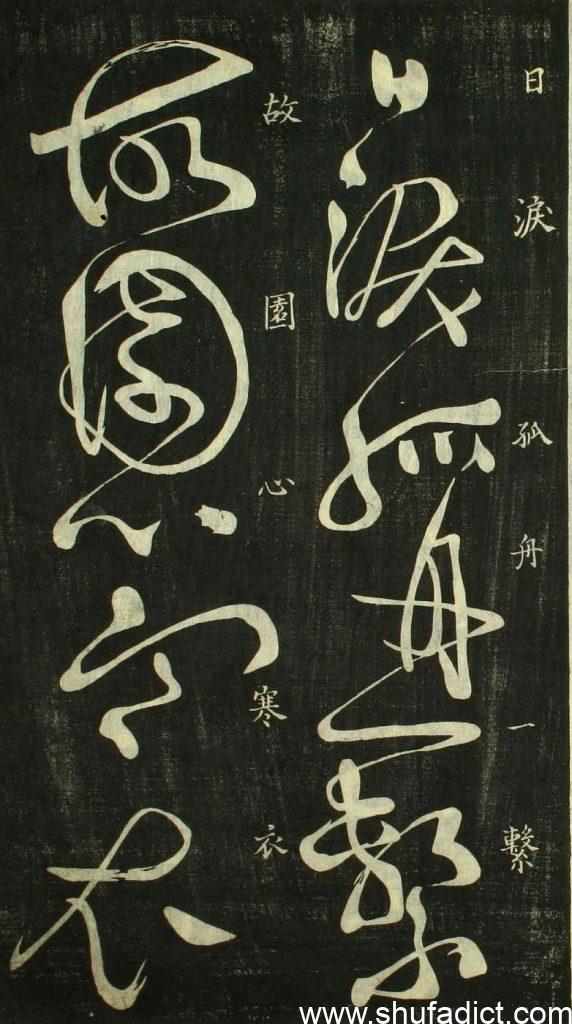 日淚孤舟一繫
故園心寒衣
www.shufadict.com